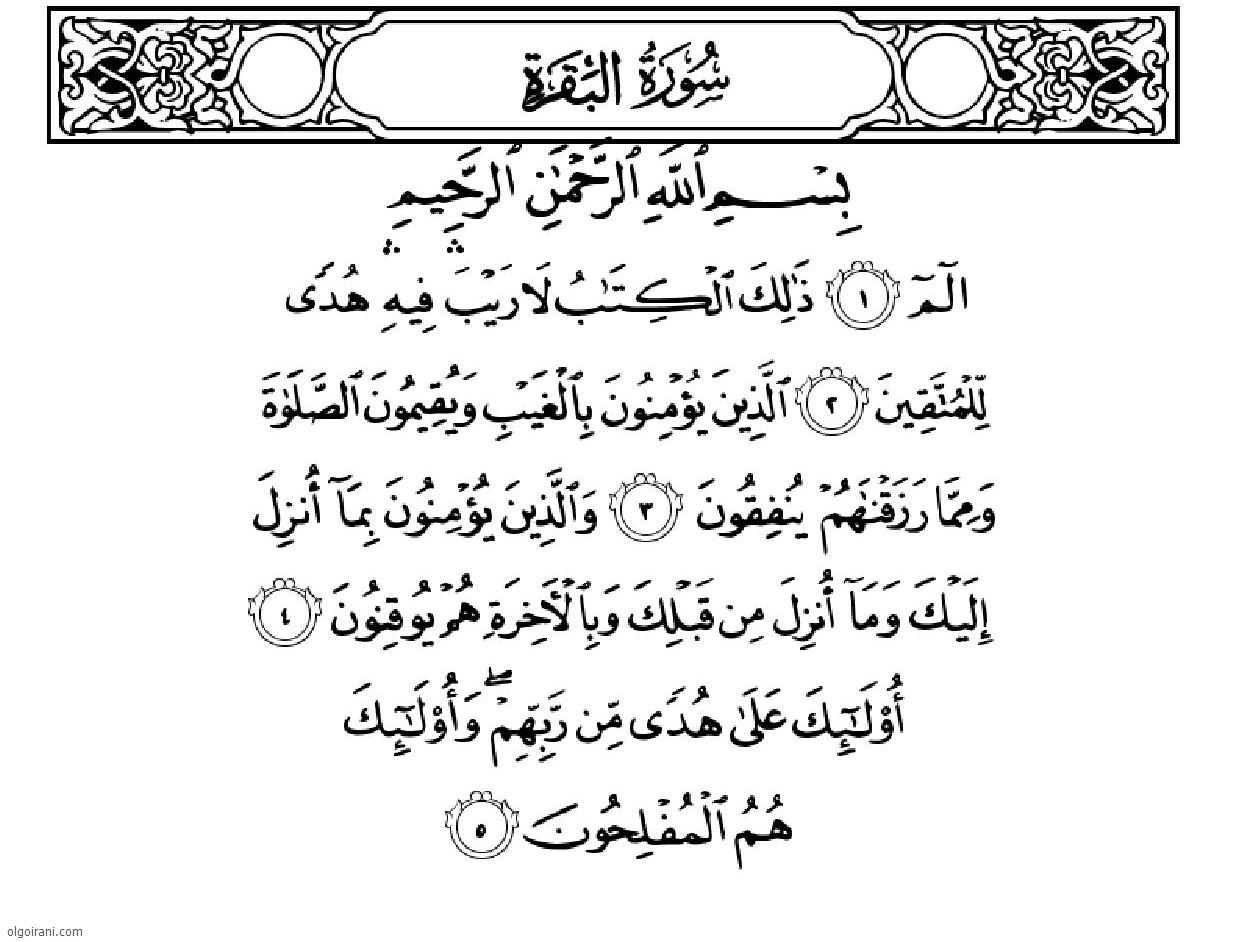 سُورَةُ البَقَرَةِ
بِسْمِ ٱللَّهِ ٱلرَّحْمَٰنِ ٱلرَّحِيمِ
الٓمٓ ١ ذَٰلِكَ ٱلْكِتَٰبُ لَا رَيْبَ ۛ فِيهِ ۛ هُدًى
لِّلْمُتَّقِينَ ٢ ٱلَّذِينَ يُؤْمِنُونَ بِٱلْغَيْبِ وَيُقِيمُونَ ٱلصَّلَوٰةَ
وَمِمَّا رَزَقْنَٰهُمْ يُنفِقُونَ ٣ وَٱلَّذِينَ يُؤْمِنُونَ بِمَآ أُنزِلَ
إِلَيْكَ وَمَآ أُنزِلَ مِن قَبْلِكَ وَبِٱلْأَخِرَةِ هُمْ يُوقِنُونَ ٤
أُوْلَٰٓئِكَ عَلَىٰ هُدًى مِّن رَّبِّهِمْ ۖ وَأُوْلَٰٓئِكَ
هُمُ ٱلْمُفْلِحُونَ ٥
olgoirani.com